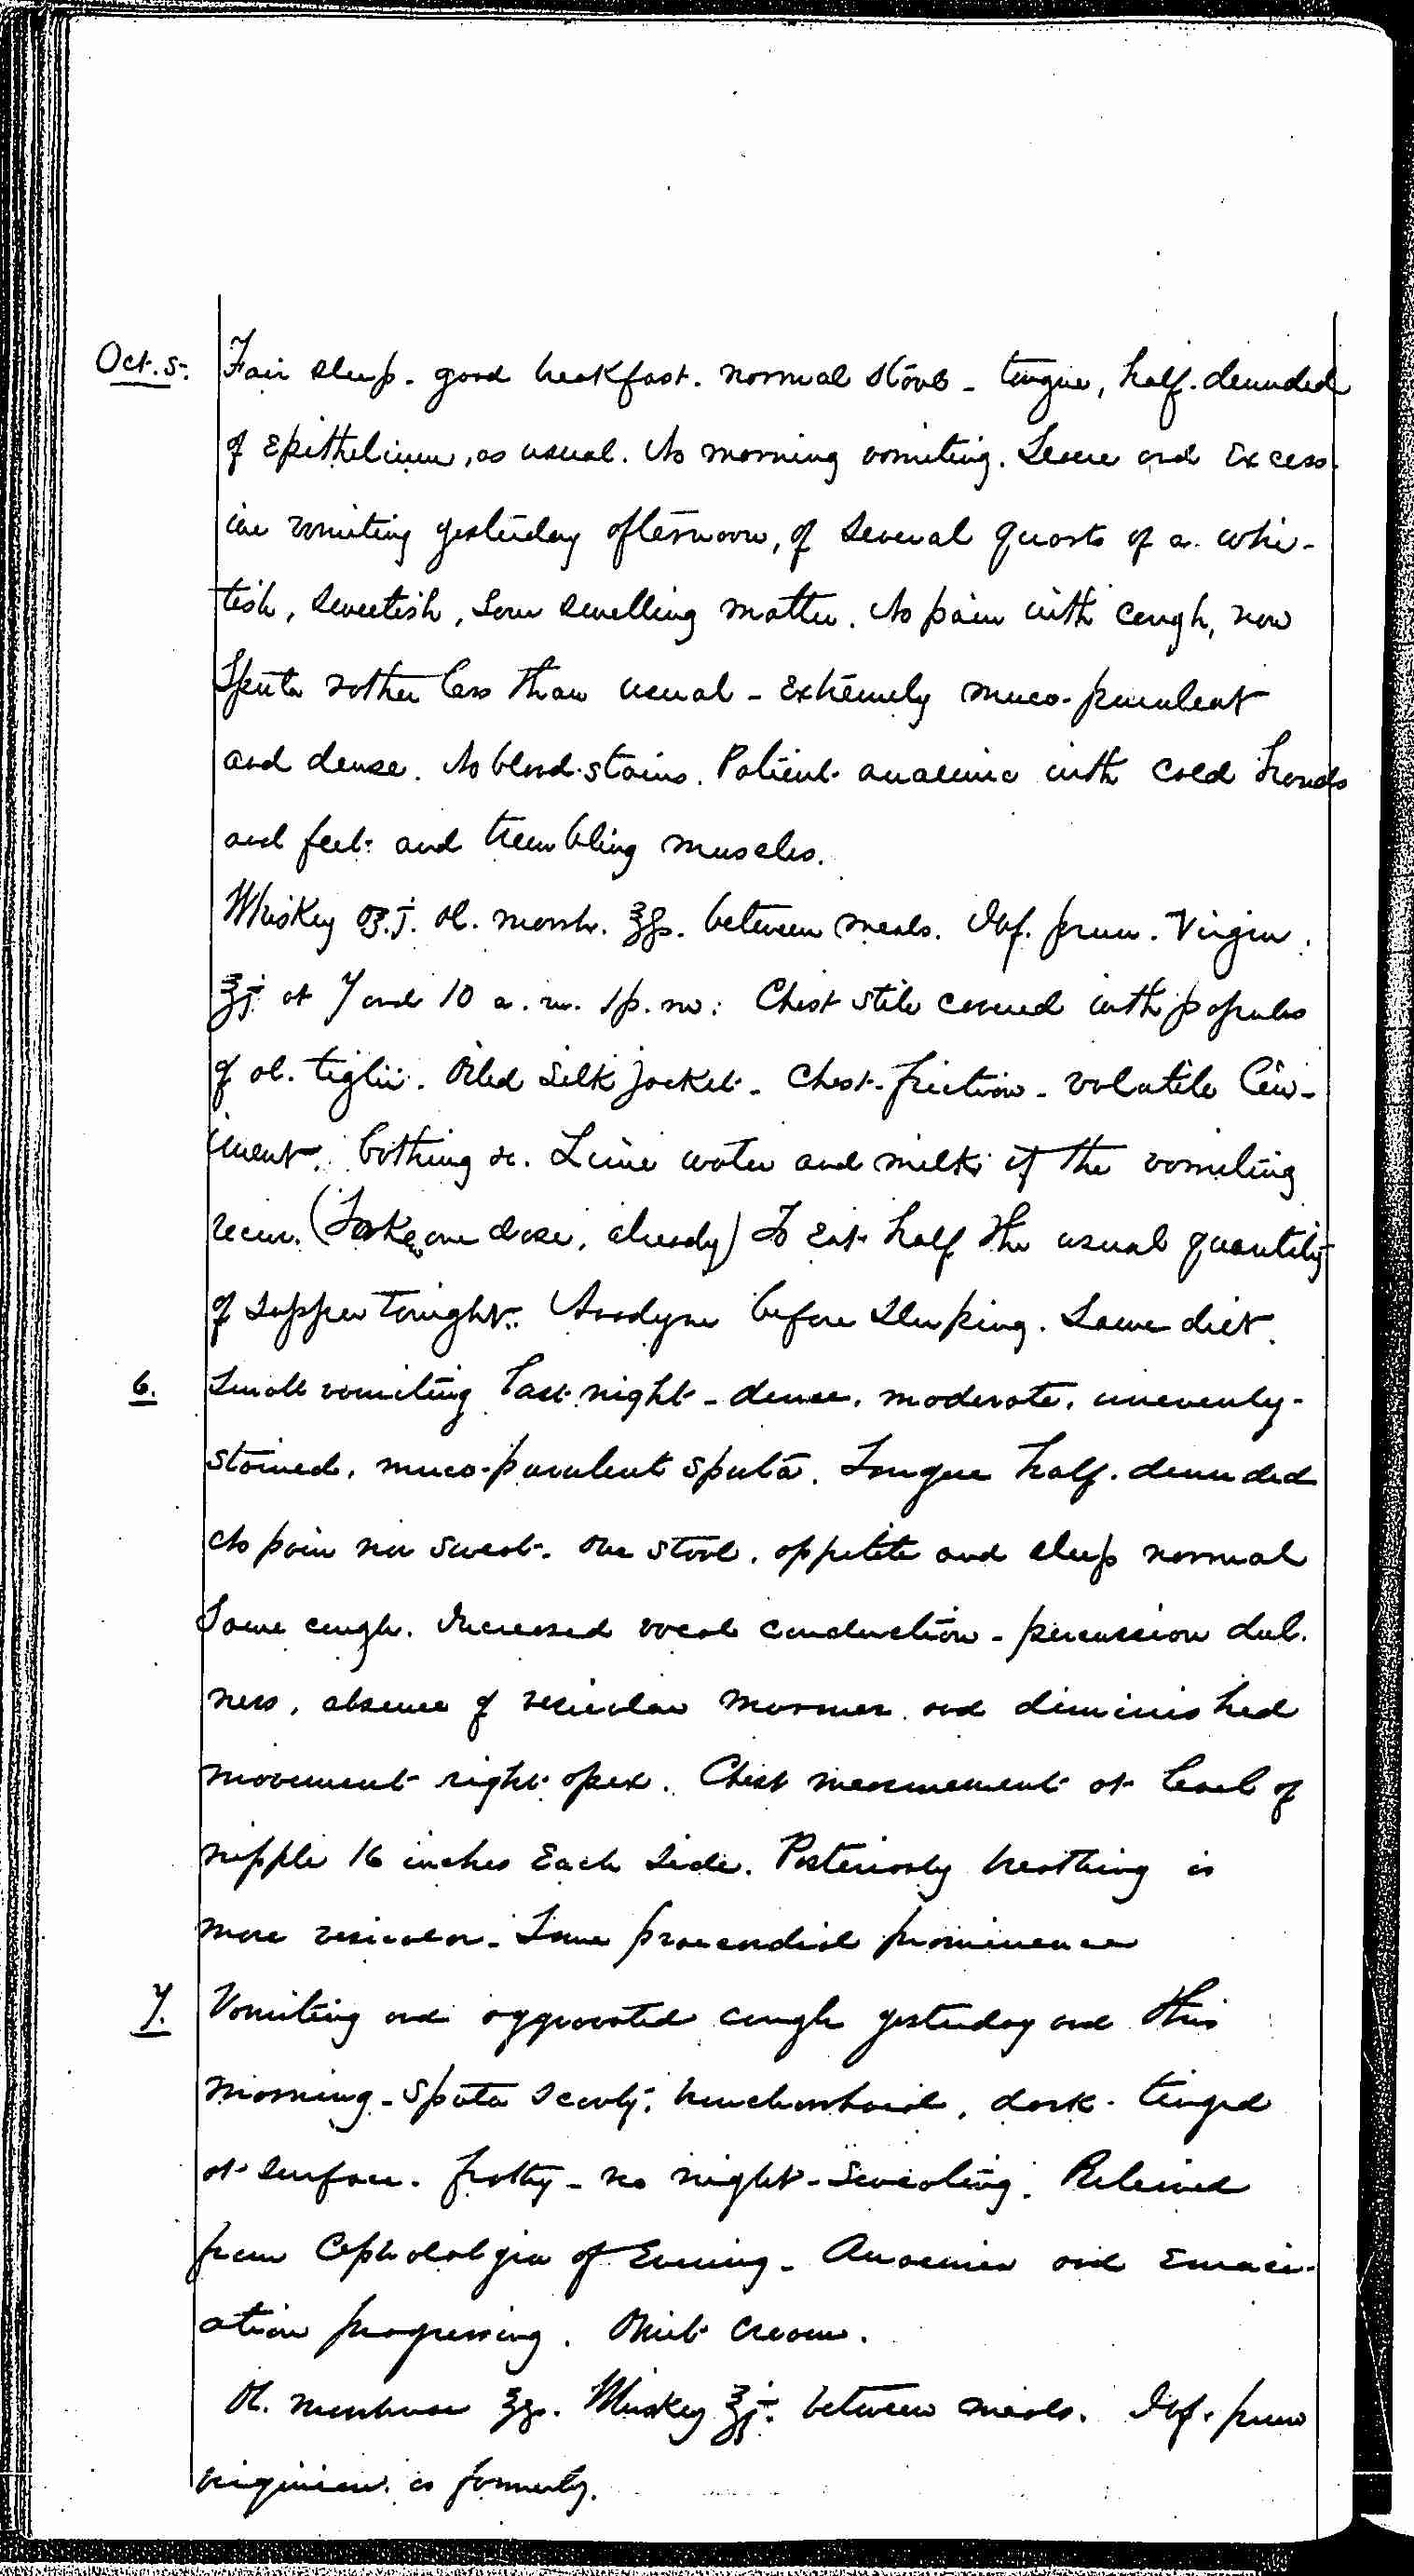 Oct. 5. Fair sleep - good breakfast. normal stools - tongue, half-denuded
of epithelium, as usual. No morning vomiting. Severe and excess-
ive vomiting yesterday afternoon, of several quarts of a whi-
tish, sweetish, sour smelling matter. No pain with cough, now
Sputa rather less than usual - extremely muco-purulent
and dense. No blood-stains. Patient anaemic with cold hands
and feet and trembling muscles.
Whiskey oz.j. ol. morrh. ℥ss. between meals. Inf. prun. Virgin.
℥j. at 7 and 10 a.m. 1 p.m. Chest still covered with papules
of ol. tiglii. Oiled silk jacket - Chest-friction - volatile lin-
iment. bathing &c. Lime water and milk if the vomiting
recur. (Take one dose, already) To eat half the usual quantity
of supper tonight. Anodyne before sleeping. Same diet.
6. Small vomiting last night - dense, moderate, unevenly-
stained, muco-purulent sputa. Tongue half-denuded
No pain nor sweat. One stool, appetite and sleep normal
Some cough. Increased vocal conduction - percussion dul-
ness, absence of vesicular murmur and diminished
movement right apex. Chest measurement at level of
nipple 16 inches each side. Posteriorly breathing is
more vesicular. Some praecordial prominence
7. Vomiting and aggravated cough yesterday and this
morning - Sputa scanty, dark-tinged
at surface. frothy - no night-sweating. Relieved
from Cephalalgia of Evening - Anaemia and Emaci-
ation progressing. Omit cream.
Ol. morrhuae ℥ss. Whiskey ℥j. between meals. Inf. prun
virginian. as formerly.